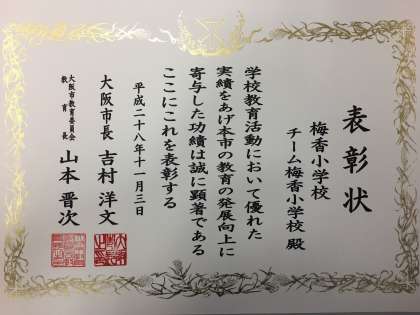 表彰状
梅香小学校
チーム梅香小学校 殿
学校教育活動において優れた
実績をあげ本市の教育の発展向上に
寄与した功績は誠に顕著である
ここにこれを表彰する
平成二十八年十一月三日
大阪市長 吉村洋文
大阪市教育委員会
教育長
山本晋次